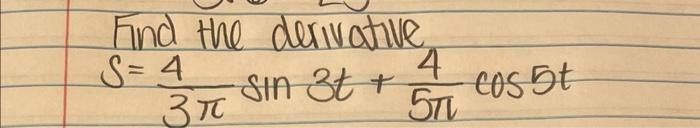 Find the derivative
S = 4/3π sin 3t + 4/5π cos 5t